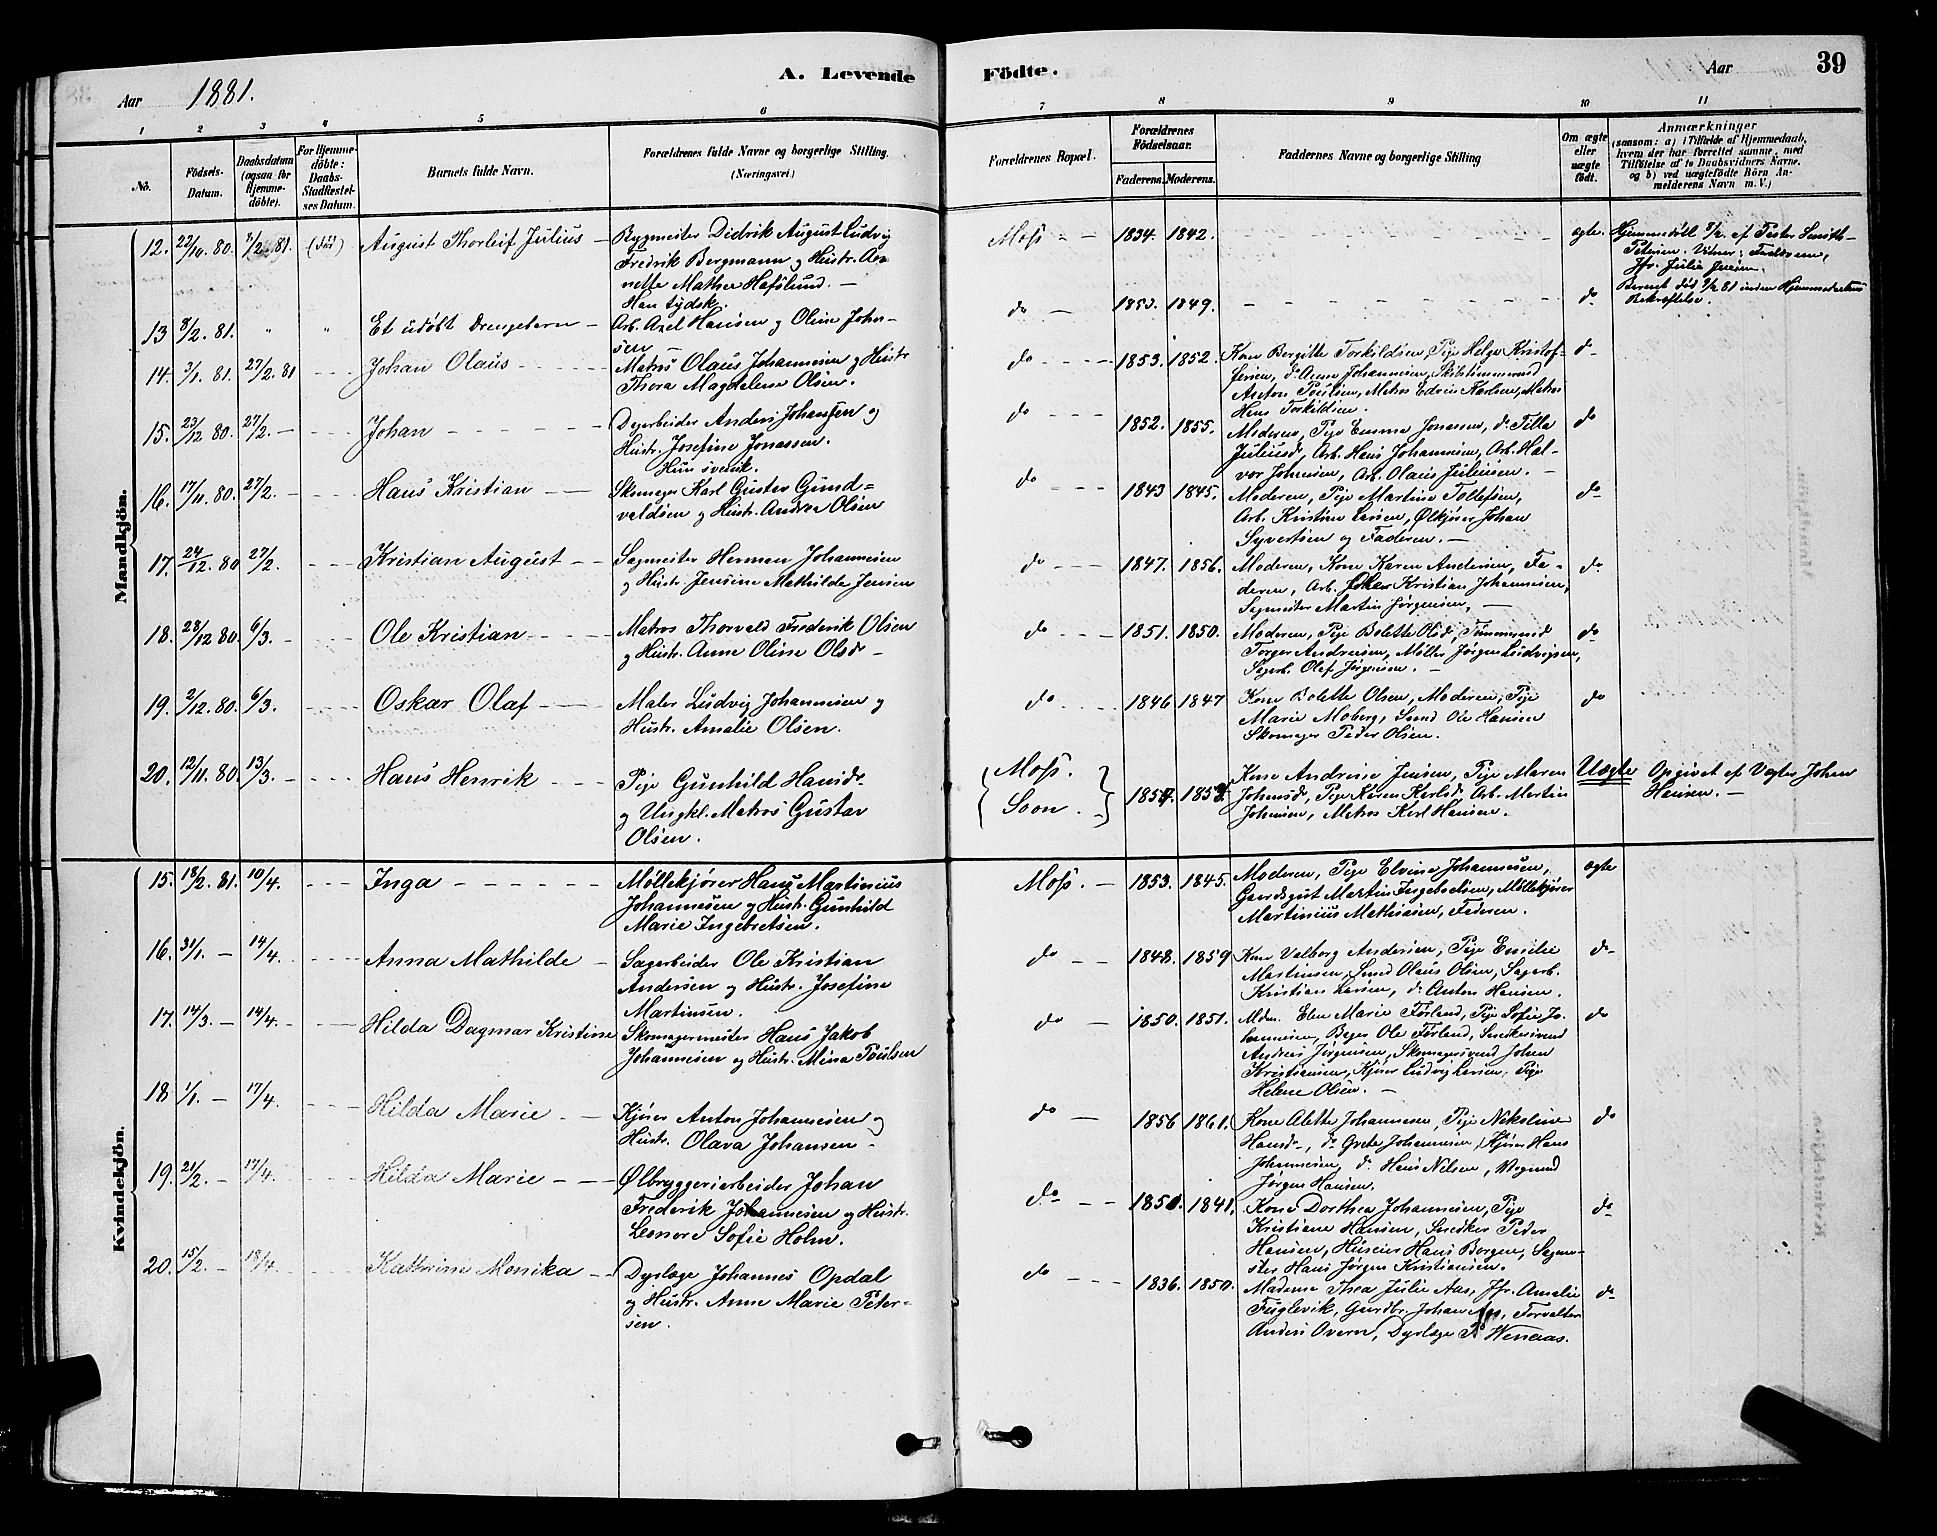 Aar 1881.
A. Levende Födte.
Aar
39
1 2 3 4 5 6 7 8 9 10 11
No.
Födsels-Datum.
Daabsdatum (ogsaa for Hjemme-döbte).
For Hjemme-döbte: Daabs-Stadfæstelses Datum.
Barnets fulde Navn.
Forældrenes fulde Navne og borgerlige Stilling.
(Næringsvei)
Forældrenes Bopæl.
Forældrenes Födselsaar.
Faderens. Moderens.
Faddernes Navne og borgerlige Stilling
Om ægte eller uægte födt.
Anmærkninger
(saasom: a) i Tilfælde af Hjemmedaab, hvem der har forrettet samme, med Tilföielse af to Daabsvidners Navne, og b) ved uægtefödte Börn Anmelderens Navn m. V.)
Mandkjön.
12. 22/10 80. 7/2 81. (död) August Thorleif Julius
Bygmester Didrik August Ludvig
Fredrik Bergmann og Hustr. An-
nette Mathea Hafslund. —
Han tydsk.
Moss 1834. 1842. ægte.
Hjemmedöbt 7/2 af Pastor Smith-
Petersen. Vidner: Faddrene,
Jfr. Julie Jensen.
13 8/2. 81. " " Et udöbt Drengebarn
Arb. Axel Hansen og Oline John-
sen
do 1853. 1849. do
14. 3/1. 81. 27/2. 81 Johan Olaus
Matros Olaus Johannesen og Hustr
Thora Magdalene Olsen.
do 1853. 1852.
Kone Bergitte Torkildsen, Pige Helga Kristof-
fersen, do Anna Johannesen, Skibstömmermd
Anton Poulsen, Matros Edvin Karlsen, Matros
Hans Torkildsen.
do
15. 23/12 80. 27/2. Johan
Dagarbeider Anders Johansen og
Hustr. Josefine Jonassen.
Hun svensk.
do 1852. 1855.
Moderen, Pige Emma Jonassen, do Tilla
Juliusd, Arb. Hans Johannesen, Arb. Hal-
vor Johnsen, Arb. Olaus Juliusen.
do
16. 17/11. 80. 27/2. Hans Kristian
Skomager Karl Gustav Gund-
valdsen og Hustr. Andrea Olsen
do 1843 1845.
Moderen, Pige Martine Tollefsen,
Arb. Kristian Larsen, Ølkjörer Johan
Syvertsen og Faderen.
do
17. 24/12. 80 27/2. Kristian August
Sagmester Herman Johannesen
og Hustr. Jensine Mathilde Jensen
do 1847. 1856.
Moderen, Kone Karen Andersen, Fa-
deren, Arb. Johan Kristian Johannesen,
Sagmester Martin Jørgensen,
do
18. 28/12 80. 6/3. Ole Kristian
Matros Thorvald Frederik Olsen
og Hustr. Anne Oline Olsd
do 1851. 1850.
Moderen, Pige Bolette Olsd, Tömmermd
Torger Andreasen, Møller Jørgen Ludvigsen,
Sagarb. Olaf Jørgensen.
do
19. 2/12. 80. 6/3. Oskar Olaf
Maler Ludvig Johannesen og
Hustr. Amalie Olsen.
do 1846 1847
Kone Bolette Olsen, Moderen, Pige
Marie Moberg, Smed Ole Hansen
Skomager Peder Olsen.
do
20. 12/11. 80. 13/3. Hans Henrik
Pige Gunhild Hansd.
og Ungkl. Matros Gustav
Olsen.
Moss.
Soon.
Kone Andrine Jensen, Pige Maren
Johansd, Pige Karen Karlsd, Arb. Martin
Johnsen, Matros Karl Hansen.
Uægte
Opgivet af Vægter Johan
Hansen.
Kvindekjön.
15. 18/2. 81. 10/4. Inga
Möllekjörer Hans Martinius
Johannesen og Hustr. Gunhild
Marie Ingebretsen.
Moss. 1853. 1845.
Moderen, Pige Elvine Johannesen,
Gaardsgut Martin Ingebretsen, Möllekjörer
Martinius Mathiasen, Faderen.
ægte
16. 31/1. 14/4. Anna Mathilde
Sagarbeider Ole Kristian
Andersen og Hustr. Josefine
Martinsen.
do 1848. 1859
Kone Valborg Andersen, Pige Emilie
Martinsen, Smed Olaus Olsen, Sagarb.
Kristian Larsen, do Anton Hansen.
do
17. 14/3. 14/4. Hilda Dagmar Kristine
Skomagermester Hans Jakob
Johannesen og Hustr. Mina Poulsen
do 1850. 1851.
Mdm. Elen Marie Førland, Pige Sofie Jo-
hannesen, Bager Ole Førland, Snedkersvend
Andreas Jørgensen, Skomagersvend Johan
Kristiansen, Kjører Ludvig Larsen, Pige
Helene Olsen.
do
18 1/1. 17/4. Hilda Marie
Kjører Anton Johannesen og
Hustr. Olava Johansen
do 1856 1861.
Kone Alette Johannesen, Pige Nikoline
Hansd, do Grete Johannesen, Kjörer Hans
Johannesen, do Hans Nilsen, Vognmd
Jørgen Hansen.
do
19. 21/2. 17/4. Hilda Marie
Ølbryggeriarbeider Johan
Frederik Johannesen og Hustr.
Leonore Sofie Holm.
do 1850. 1841.
Kone Dorthea Johannesen, Pige
Kristiane Hansen, Snedker Peder
Hansen, Huseier Hans Borgen, Sagme-
ster Hans Jørgen Kristiansen.
do
20. 15/2. 18/4. Kathrine Monika
Dyrlæge Johannes Opdal
og Hustr. Anne Marie Peter-
sen.
do 1836. 1850.
Madame Thea Julie Aas, Jfr. Amalie
Fuglevik, Gaardbr. Johan Aas, Forvalter
Anders Overn, Dyrlæge Wenaas.
do